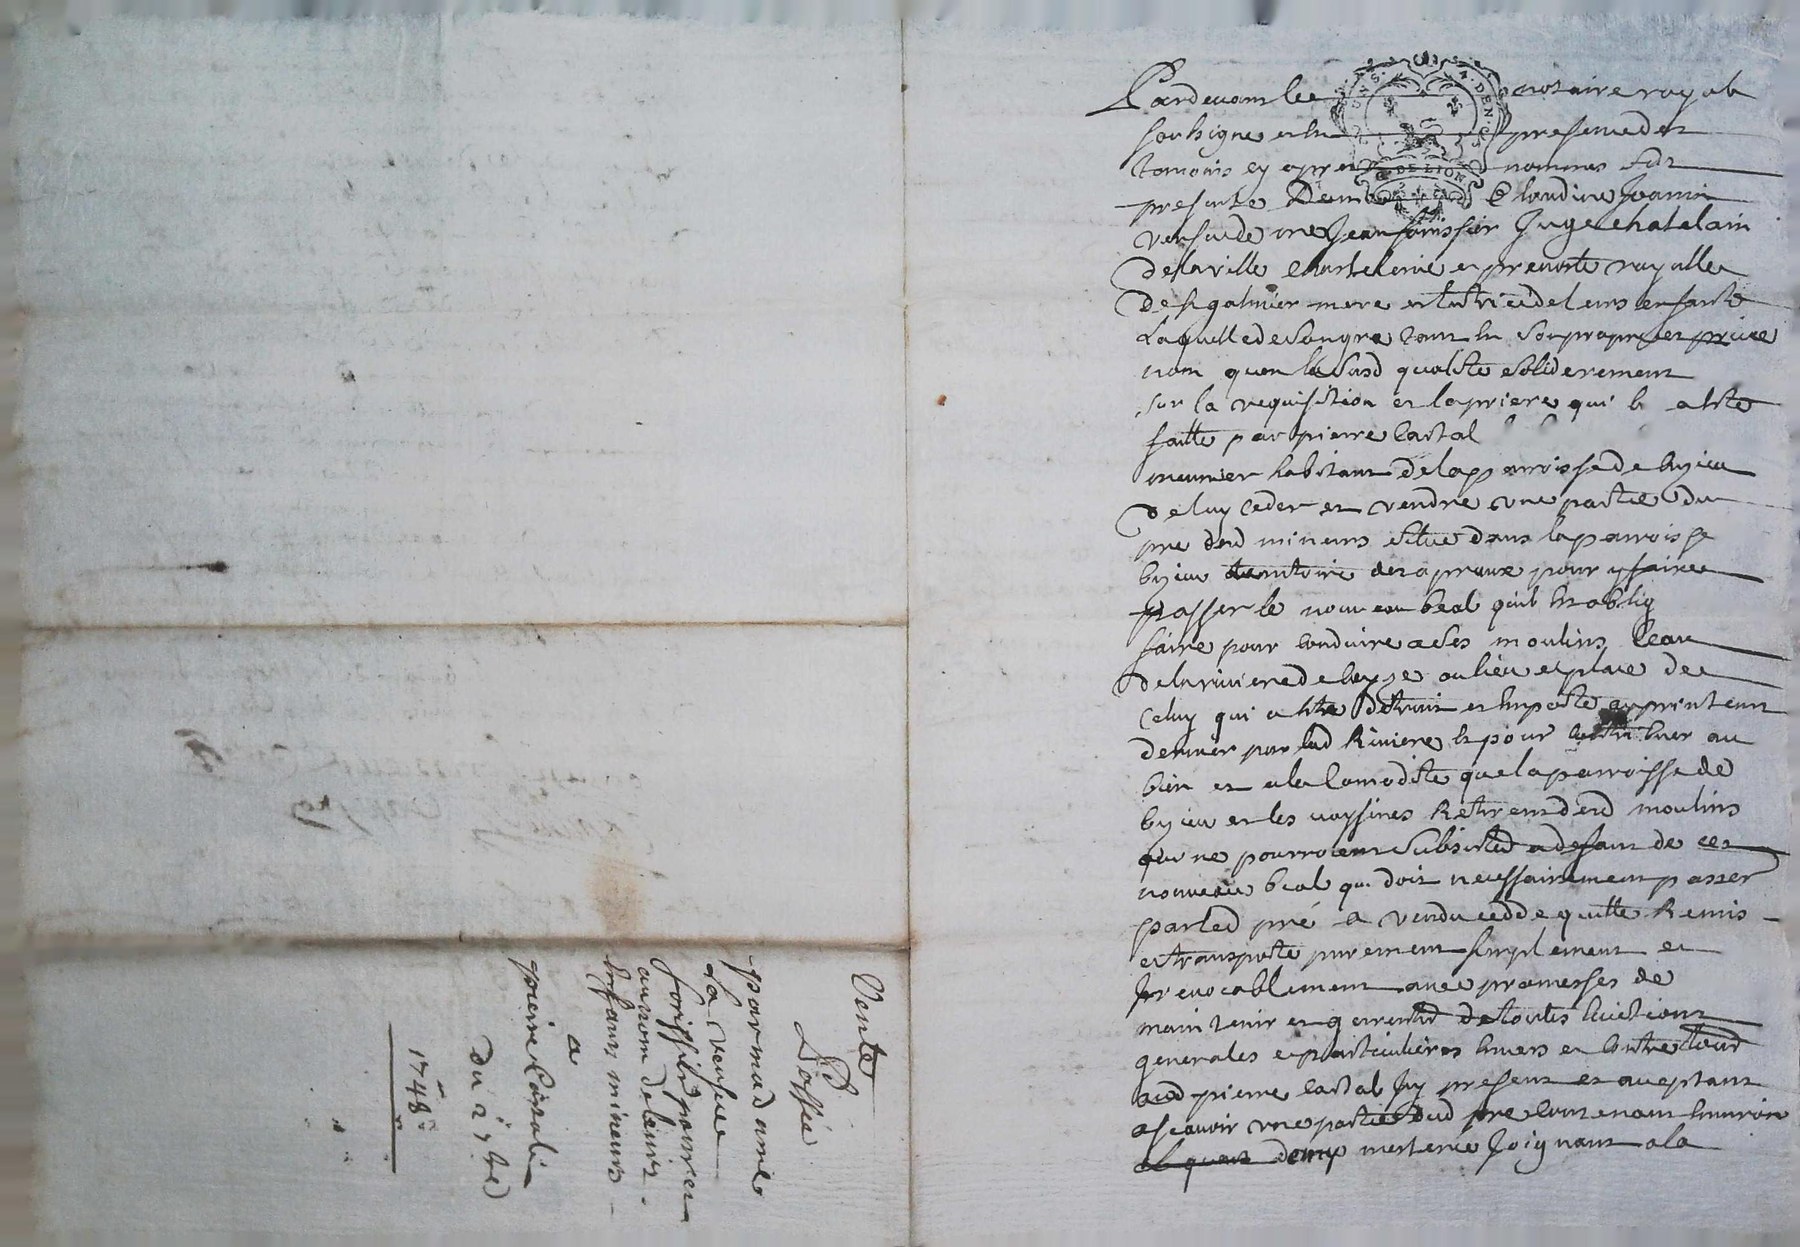 Pardevant le notaire royal
soubsigne et en presence des
temoins cy apres nommes fut
presente Demlle Claudine Joanin
veufve de me Jean forissier Juge chatelain
de la ville chastelenie et prevosté royalle
de st galmier mere et tutrice de leurs enfants
Laquelle de son gre tant en son propre et prive
nom quen la susd qualité solidairement
sur la requisition et la priere qui l a esté
faitte par pierre Castal
meunier habitant de la parroisse de
de luy ceder et vendre une partie du
pre desd mineurs situé dans la parroisse
territoire des pour y faire
passer le nouveau beal quil est oblig
faire pour conduire a ses moulins leau
de la riviere de au lieu et place de
celuy qui a esté détruit et emporté au printems
dernier par lad Riviere et pour contribuer au
bien et a la comodité que la parroisse de
et les voysines Retirent desd moulins
qui ne pourroient subsister a defaut de ces
nouveau beal qui doit necessairement passer
par led pré a vendu cedde quitte Remis
et transporte purement simplement et
Irrevocablement avec promesses de
maintenir et garentir de toutes Evictions
generales et particulieres envers et contre tous
aud pierre Castal Icy present et aceptant
ascavoir une partie dud pre contenant environ
demy mesterée Joignant a la
Vente
passée
par madame
La veufve
forissier pour et
au nom de leurs
Enfans mineurs
a
pierre Castal
Du 2
1748
DE LION